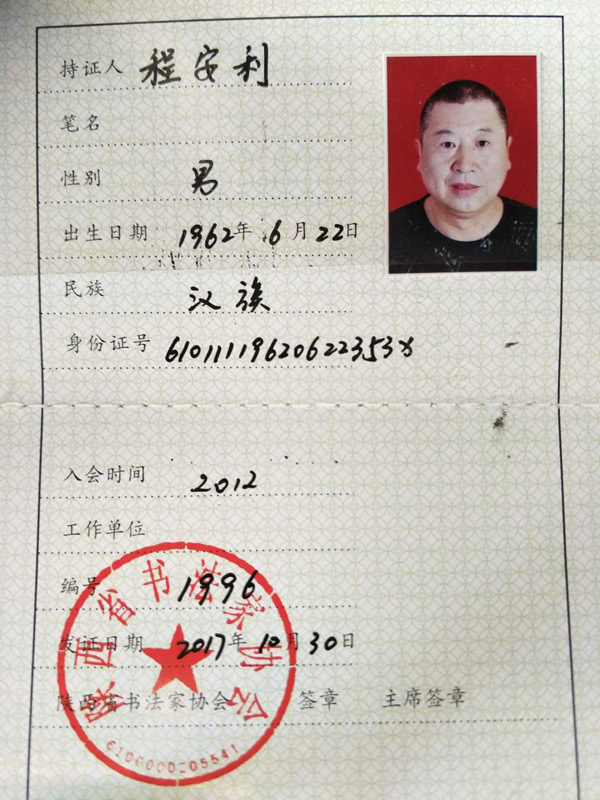 持证人 程安利
笔名
性别 男
出生日期 1962年 6月 22日
民族 汉族
身份证号 61011119620622353x
入会时间 2012
工作单位
编号 1996
发证日期 2017年 10月 30日
陕西省书法家协会 签章 主席签章
陕西省书法家协会
6100000205541